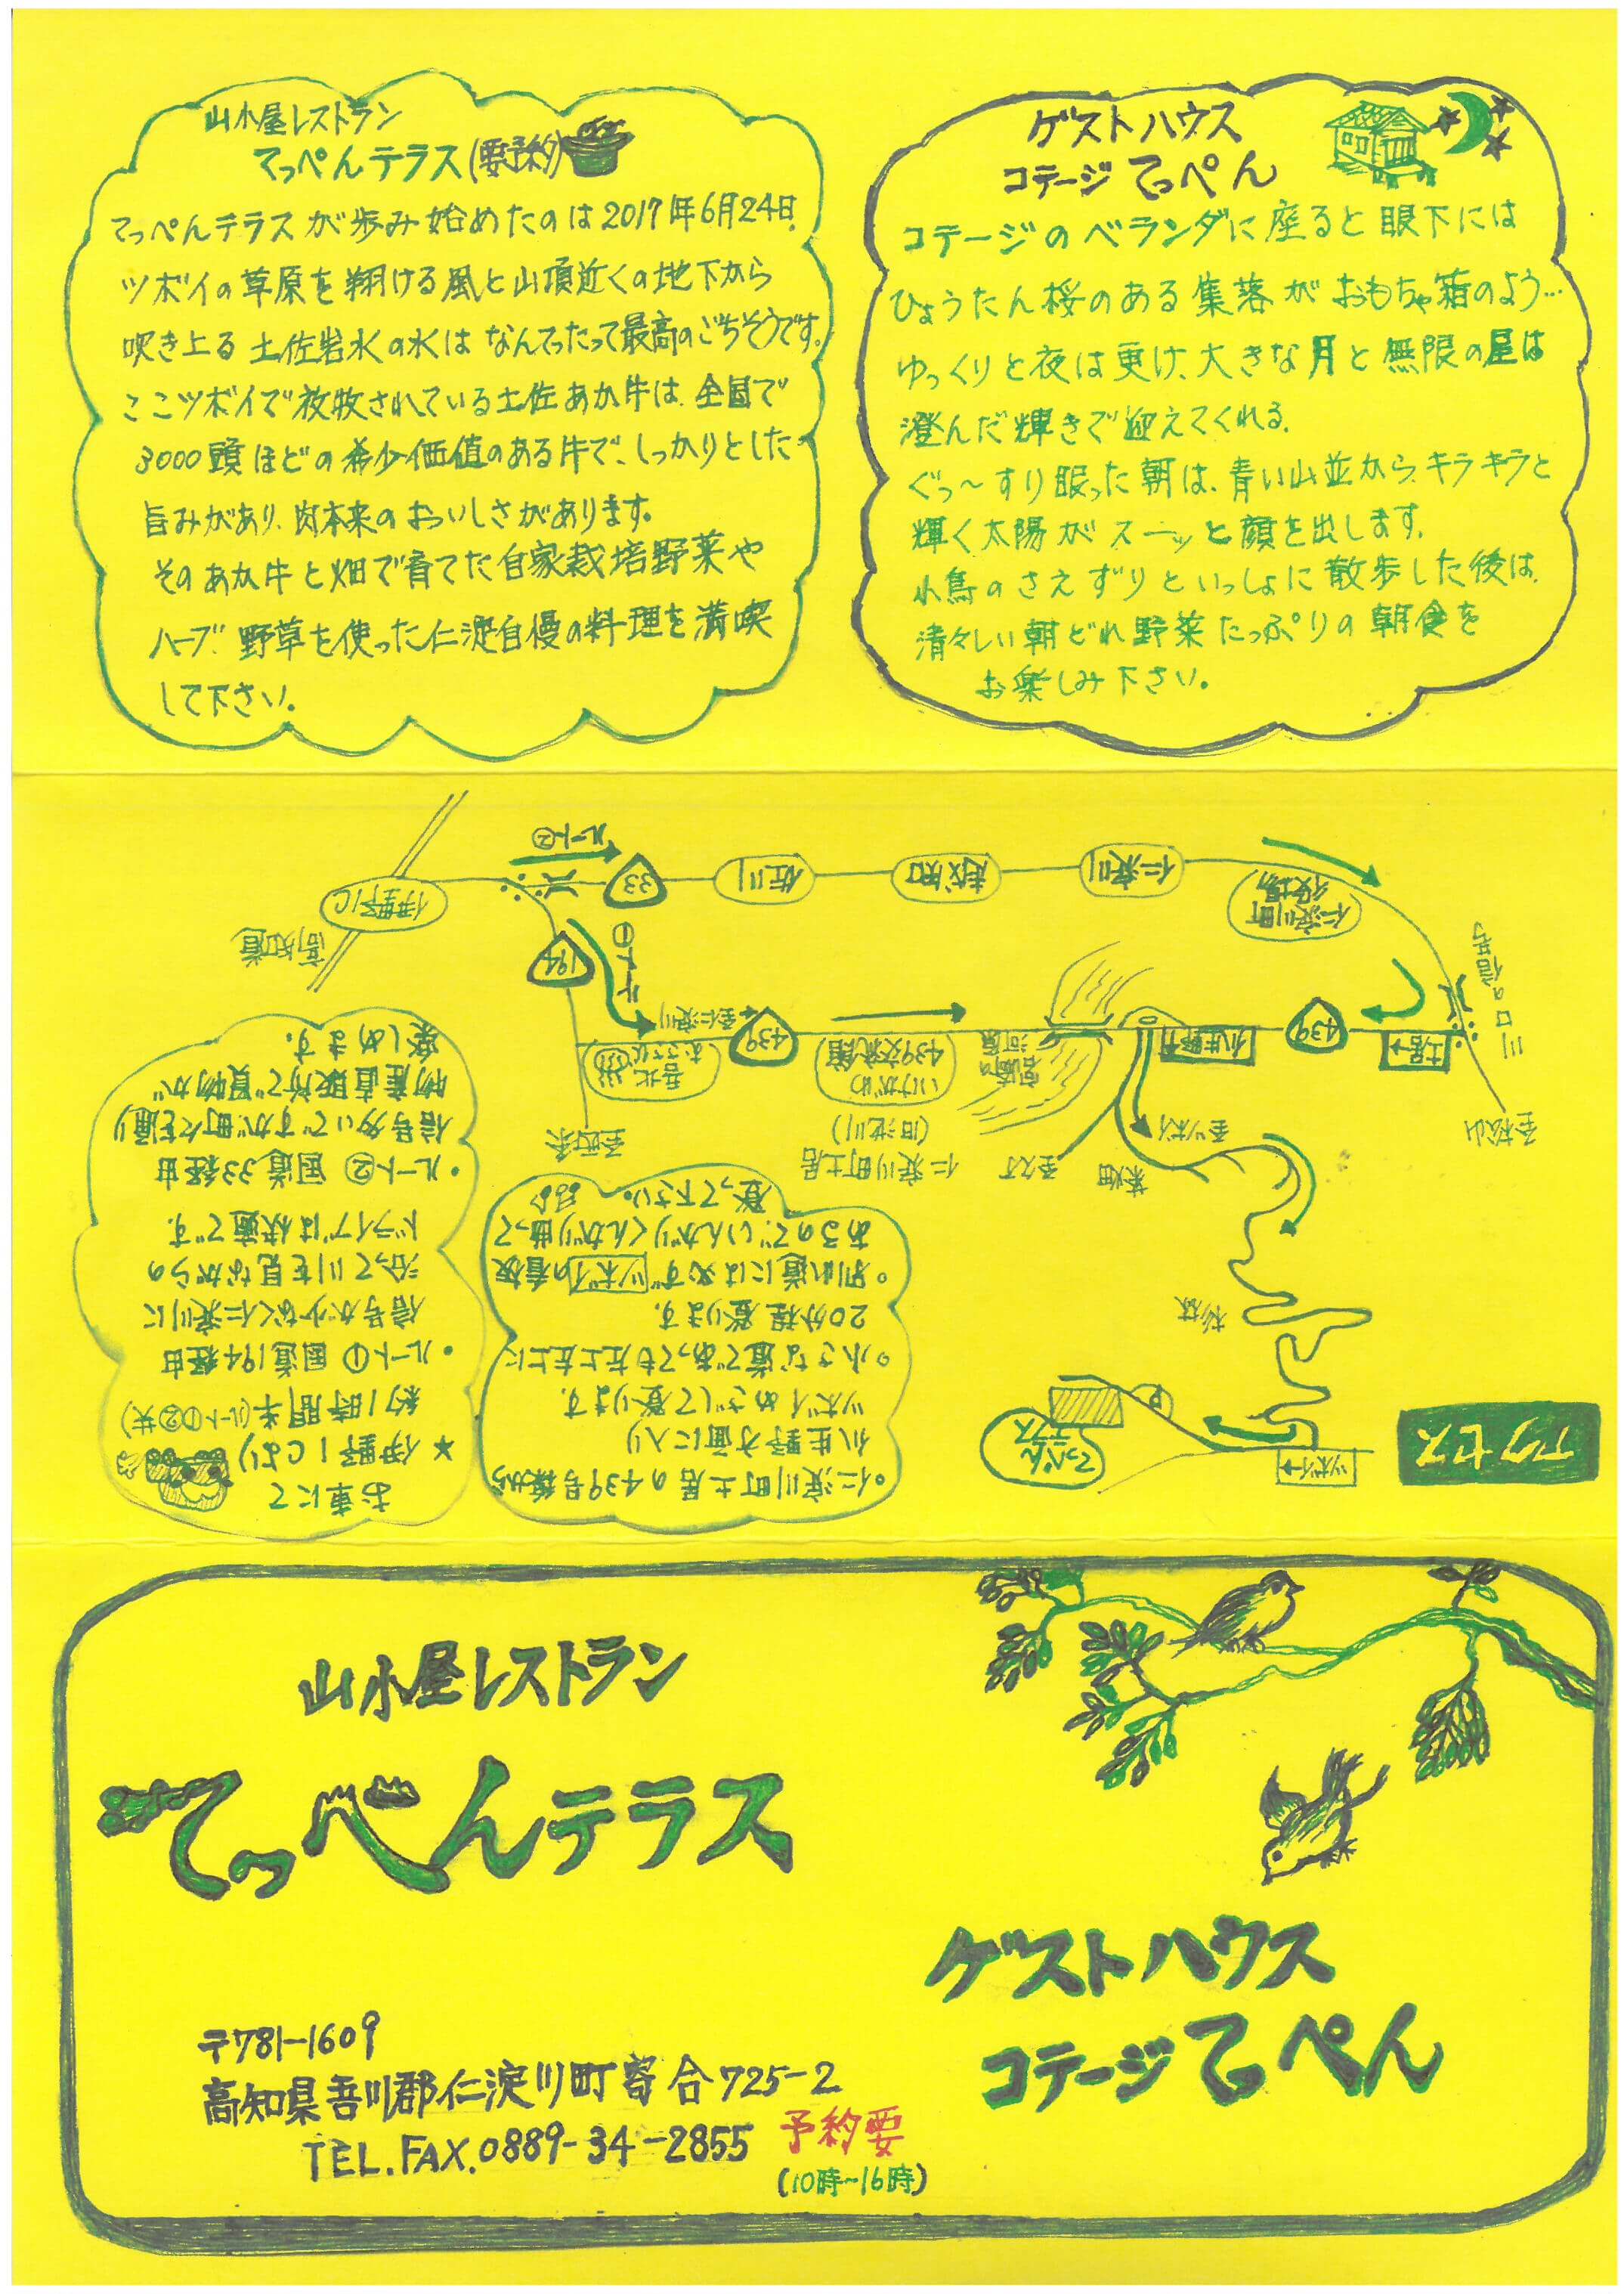 山小屋レストラン
てっぺんテラス(要予約)
てっぺんテラスが歩み始めたのは2017年6月24日。
ツボイの草原を翔ける風と山頂近くの地下から
吹き上る土佐岩水の水はなんてったって最高のごちそうです。
ここツボイで放牧されている土佐あか牛は、全国で
3000頭ほどの希少価値のある牛で、しっかりとした
旨みがあり、肉本来のおいしさがあります。
そのあか牛と畑で育てた自家栽培野菜や
ハーブ、野草を使った仁淀自慢の料理を満喫
して下さい。
ゲストハウス
コテージてっぺん
コテージのベランダに座ると眼下には
ひょうたん桜のある集落がおもちゃ箱のよう…
ゆっくりと夜は更け、大きな月と無限の星は
澄んだ輝きで迎えてくれる。
ぐっ〜すり眠った朝は、青い山並から、キラキラと
輝く太陽がスーッと顔を出します。
小鳥のさえずりといっしょに散歩した後は、
清々しい朝どれ野菜たっぷりの朝食を
お楽しみ下さい。
アクセス
ツボイ→
てっぺん
テラス
P
杉林
茶畑
至ツボイ
至久万
至松山
川口の信号
土居→
439
仁淀川町土居
(旧池川)
いけがわ
439交流館
宮崎の
河原
439
至仁淀川
吾北
むささび
至西条
ルート①
194
ルート②
33
佐川
越知
仁淀川
仁淀川町
役場
伊野IC
高知道
・仁淀川町土居の439号線から
瓜生野方面に入り
ツボイめざして登ります。
・小さな道であっても左上左上に
20分程登ります。
・別れ道には必ずツボイの看板
あるので、いんがりくんがり曲って
登って下さい。
お車にて
★伊野ICより
約1時間半(ルート①②共)
・ルート① 国道194経由
信号が少なく仁淀川に
沿って川を見ながらの
ドライブは快適です。
・ルート② 国道33経由
信号多いですが町々を通り
物産直販所で買物が
楽しめます。
山小屋レストラン
てっぺんテラス
ゲストハウス
コテージてっぺん
〒781-1609
高知県吾川郡仁淀川町寄合725-2
TEL.FAX.0889-34-2855 予約要
(10時~16時)